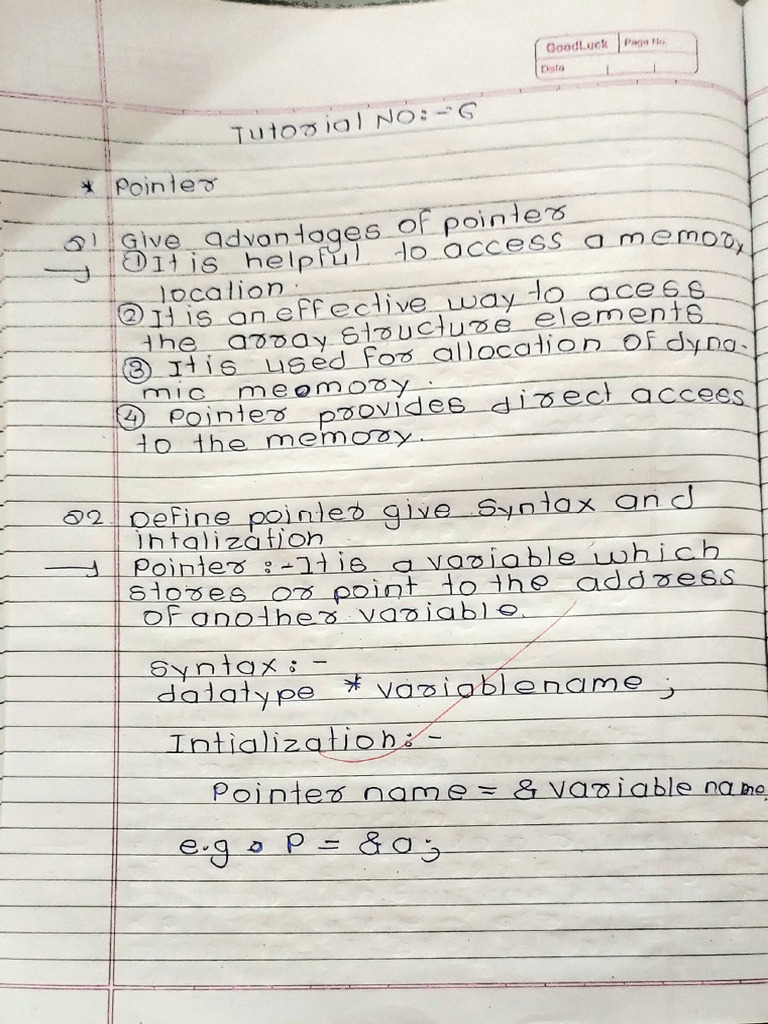 GoodLuck Page No.
Date
Tutorial NO:-6
* Pointer
Q1 Give advantages of pointer
→ ① It is helpful to access a memory
location.
② It is an effective way to acess
the array structure elements
③ It is used for allocation of dyna-
mic meomory.
④ Pointer provides direct access
to the memory.
Q2 Define pointer give syntax and
intalization
→ Pointer :- It is a variable which
stores or point to the address
of another variable.
Syntax :-
datatype * variablename ;
Intialization :-
Pointer name = & variable name.
e.g. P = &a;